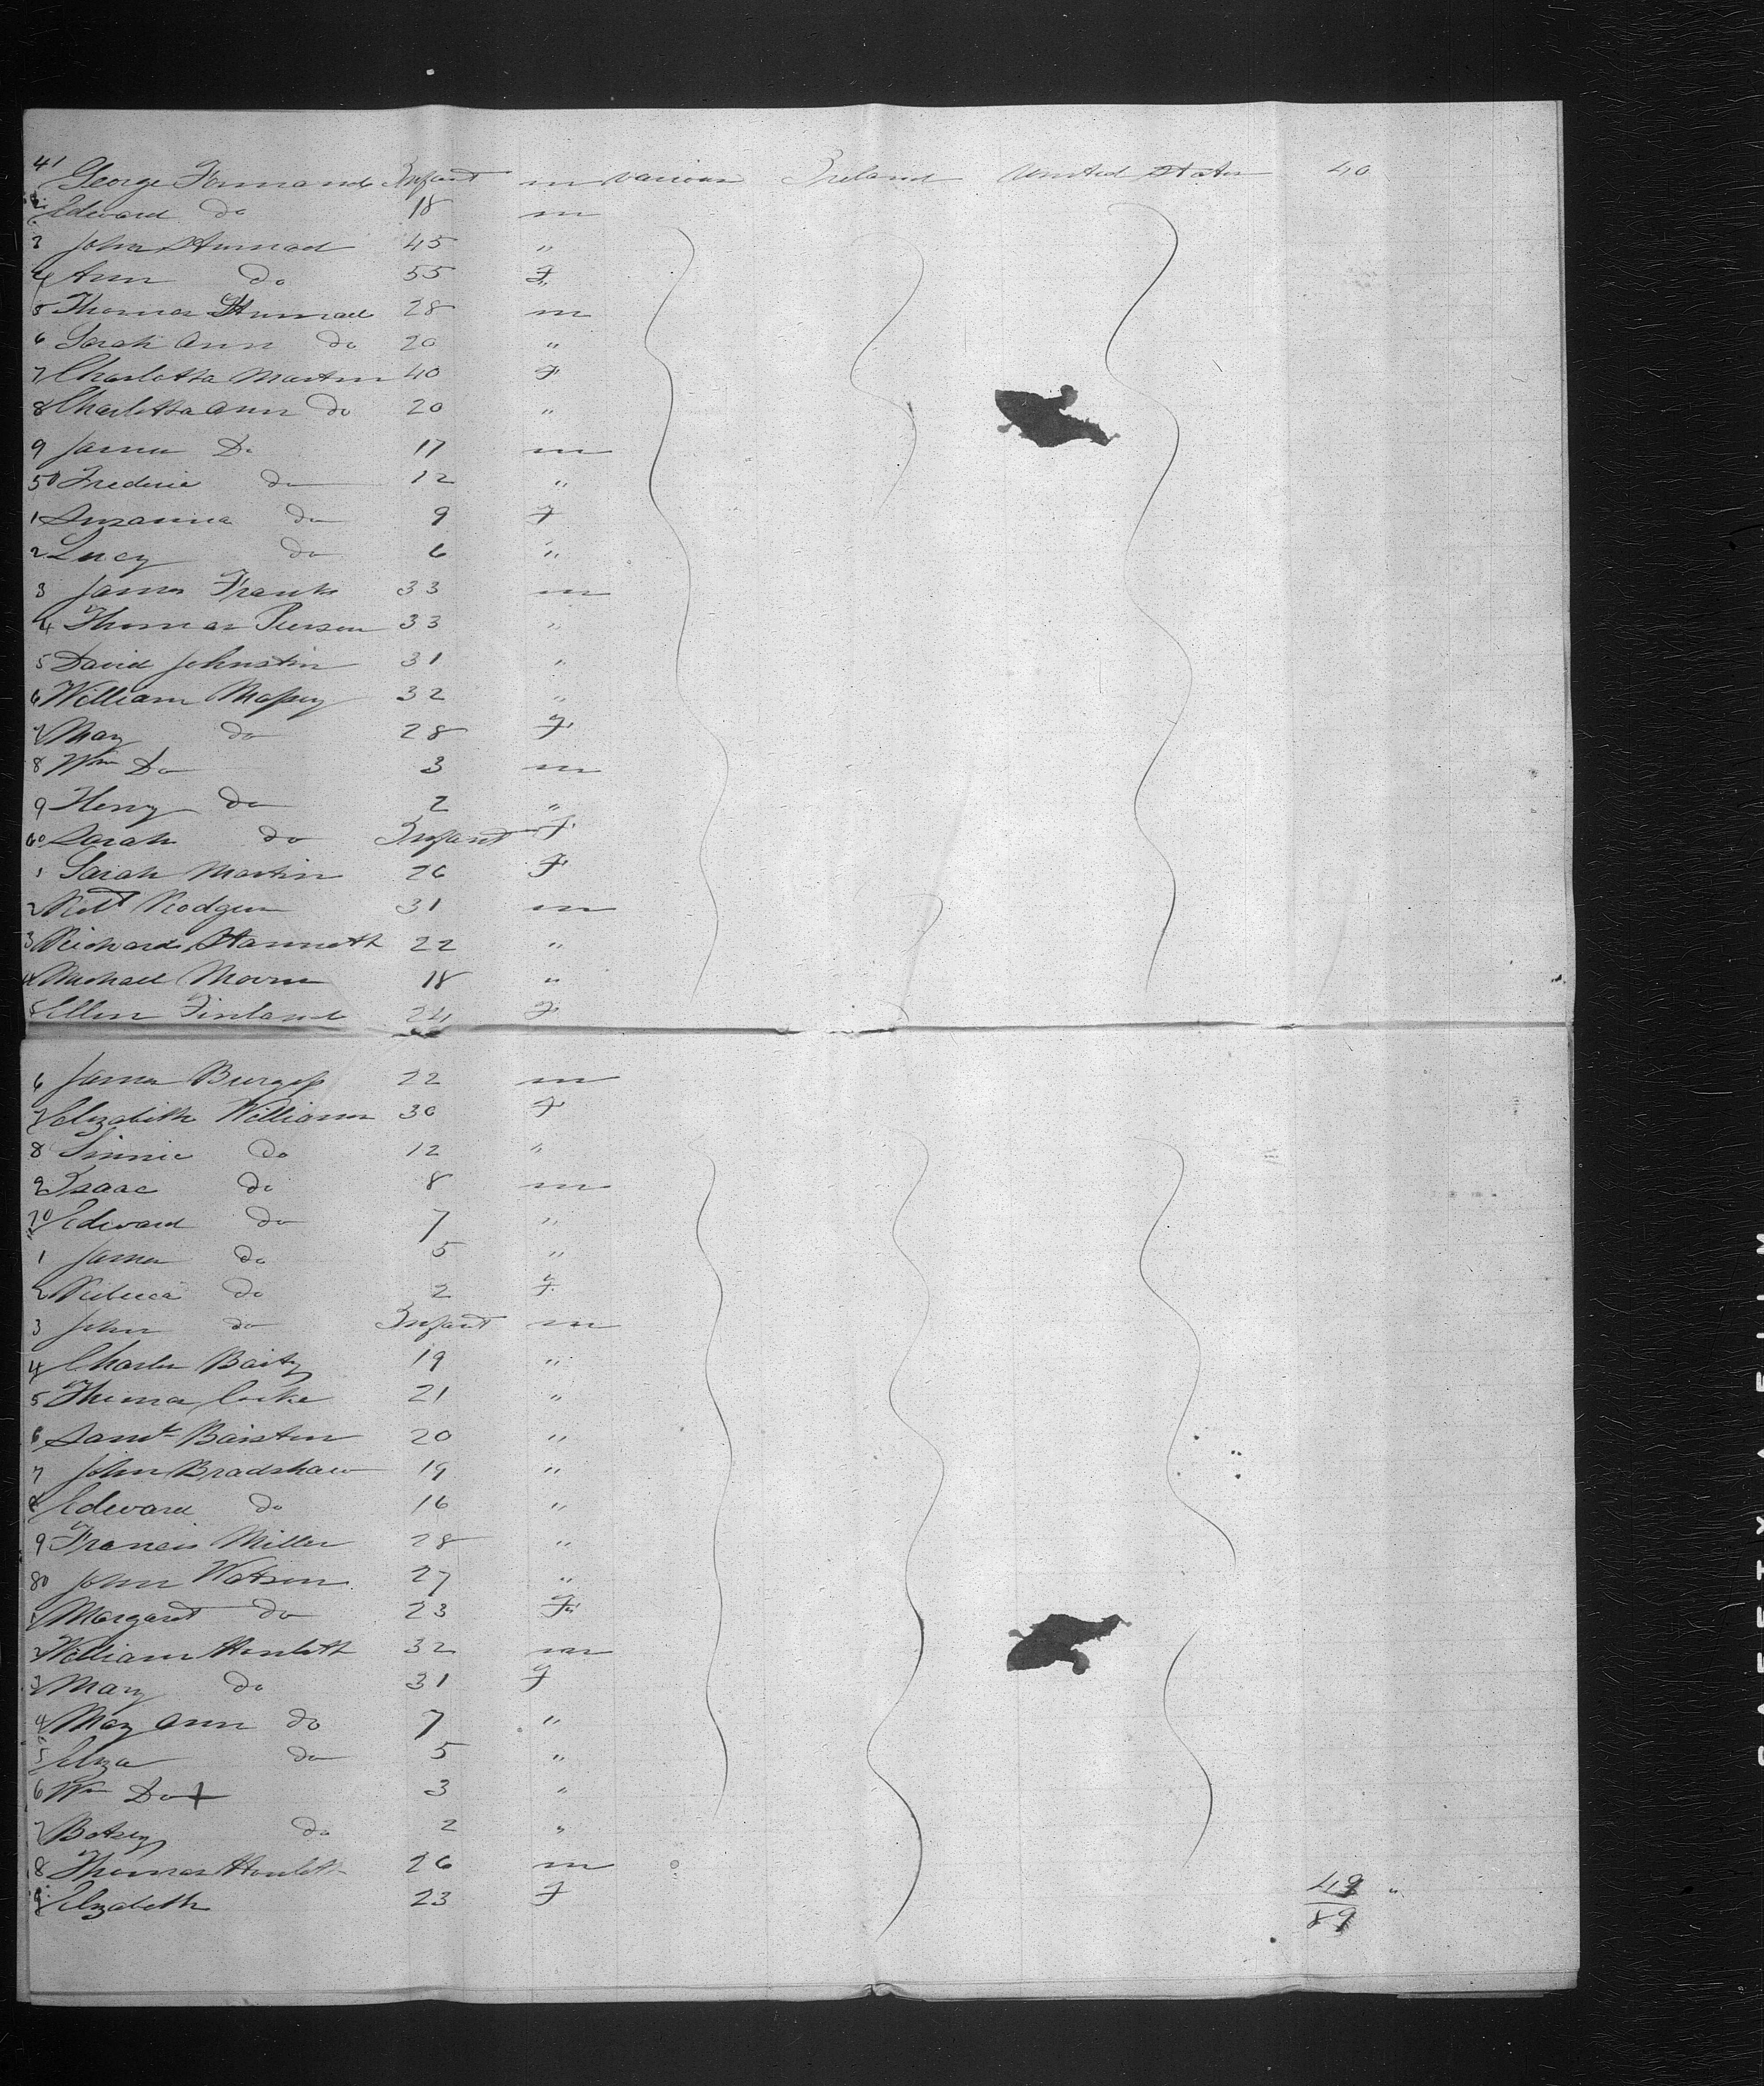 41 George Infant m various Ireland United States 40
2 Edward do 18 m
3 John 45 "
4 Ann do 55 F
5 Thomas 28 m
6 Sarah Ann do 20 "
7 Charlotta Martin 40 F
8 Charlotta Ann do 20 "
9 James Do 17 m
50 Frederic do 12 "
1 Susanna do 9 F
2 Lucy do 6 "
3 James Franks 33 m
4 Thomas Pierson 33 "
5 David Johnstin 31 "
6 William Massey 32 "
7 Mary do 28 F
8 Wm Do 3 m
9 Henry do 2 "
60 Sarah do Infant F
1 Sarah Martin 26 F
2 Robt Rodgers 31 m
3 Richard 22 "
4 Michael 18 "
5 Ellen Finland 24 F
6 James Burgess 22 m
7 Elizabeth Williams 30 F
8 do 12 "
9 Isaac do 8 m
70 Edward do 7 "
1 James do 5 "
2 Rebecca do 2 F
3 John do Infant m
4 Charles 19 "
5 Thomas 21 "
6 Saml 20 "
7 John Bradshaw 19 "
8 Edward do 16 "
9 Francis Miller 28 "
80 John Watson 27 "
1 Margaret do 23 F
2 William 32 m
3 Mary do 31 F
4 Mary Ann do 7 "
5 Eliza do 5 "
6 Wm Do + 3 "
7 Betsey do 2 "
8 Thomas 26 m
9 Elizabeth 23 F
49 "
89
SAFETY FILM